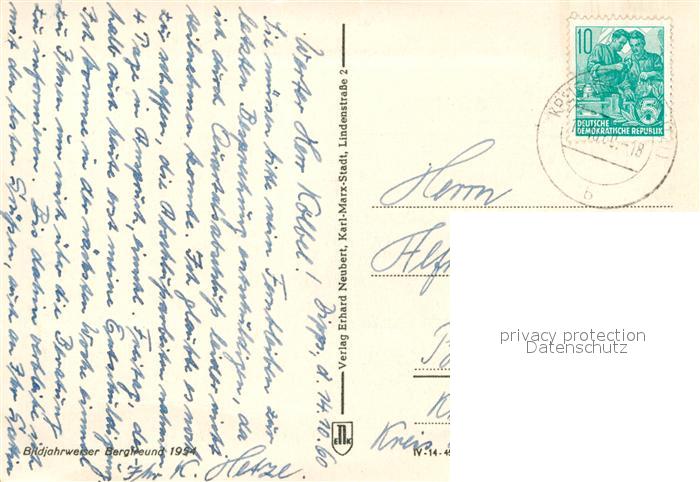 Dipp., d. 14.10.60
Werter Herr Kolbel!
Sie müssen bitte mein Fernbleiben zur
letzten Besprechung entschuldigen, da
ich durch Quartalsabschluß leider nicht
teilnehmen konnte. Ich glaubte es noch
zu schaffen, die Abschlußarbeiten nahmen
4 Tage in Anspruch, einschl. Freitag, des-
halb auch heute erst meine Entschuldigung.
Ich komme in der nächsten Woche einmal
zu Ihnen um mich über die Beratung
zu informieren. Bis dahin verbleibe ich
mit den besten Grüßen, auch an Ihre Gattin
Ihr K. Hetze.
Bildjahrweiser Bergfreund 1954
Verlag Erhard Neubert, Karl-Marx-Stadt, Lindenstraße 2
ENK
10
5
DEUTSCHE
DEMOKRATISCHE REPUBLIK
-18
b
Herrn
Kreis
IV-14-45
privacy protection
Datenschutz